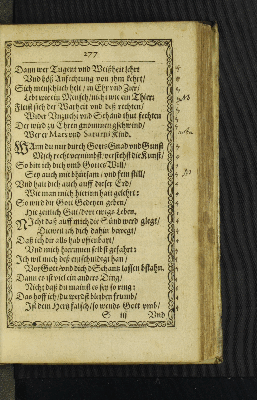 277
Dann wer Tugent und Weißheit lehrt
Und deß Anfechtung von ihm kehrt/
Sich menschlich helt / in Ehr und Zier/
Lebt wie ein Mensch/nicht wie ein Thier/
Fleist sich der Warheit und deß rechten/
Wider Unzucht und Schand thut fechten
Der wird zu Ehren genommen gschwind/
Wer er Mars und Saturni Kind.
Wann du nur durch Gotts Gnad und Gunst
Mich recht vernimbst/verstehst die Kunst/
So bin ich dich umb Gottes Will/
Sey auch mit bhutsam / und sein still/
Und hat dich auch auff dieser Erd/
Wie man mich hierinn hat gelehrt:
So wird dir Gott Gedeyen geben/
Hie zeitlich Gut/dort ewigs Leben.
Nicht daß auff mich die Sünd werd glegt/
Dieweil ich dich dahin bewegt/
Daß ich dir alls hab offenbart/
Und mich hierinnen selbst gefahrt:
Ich wil mich deß entschuldigt han/
Vor Gott/und dich d Schantz lassen bstahn.
Dann es ist viel ein anders Ding/
Nicht daß du mainst es sey so ring:
Das hoff ich/du werdst bleiben frumb/
Ist dein Hertz falsch/so wends Gott umb/
S iij Und